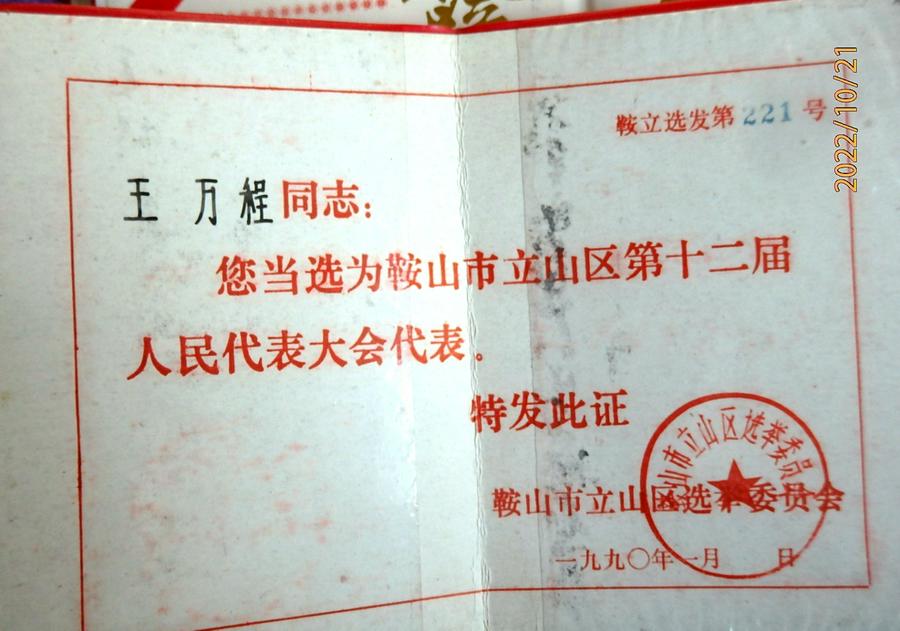 2022/10/21
鞍立选发第221号
王万程同志：
您当选为鞍山市立山区第十二届
人民代表大会代表。
特发此证
鞍山市立山区选举委员会
一九九〇年一月 日
鞍山市立山区选举委员会